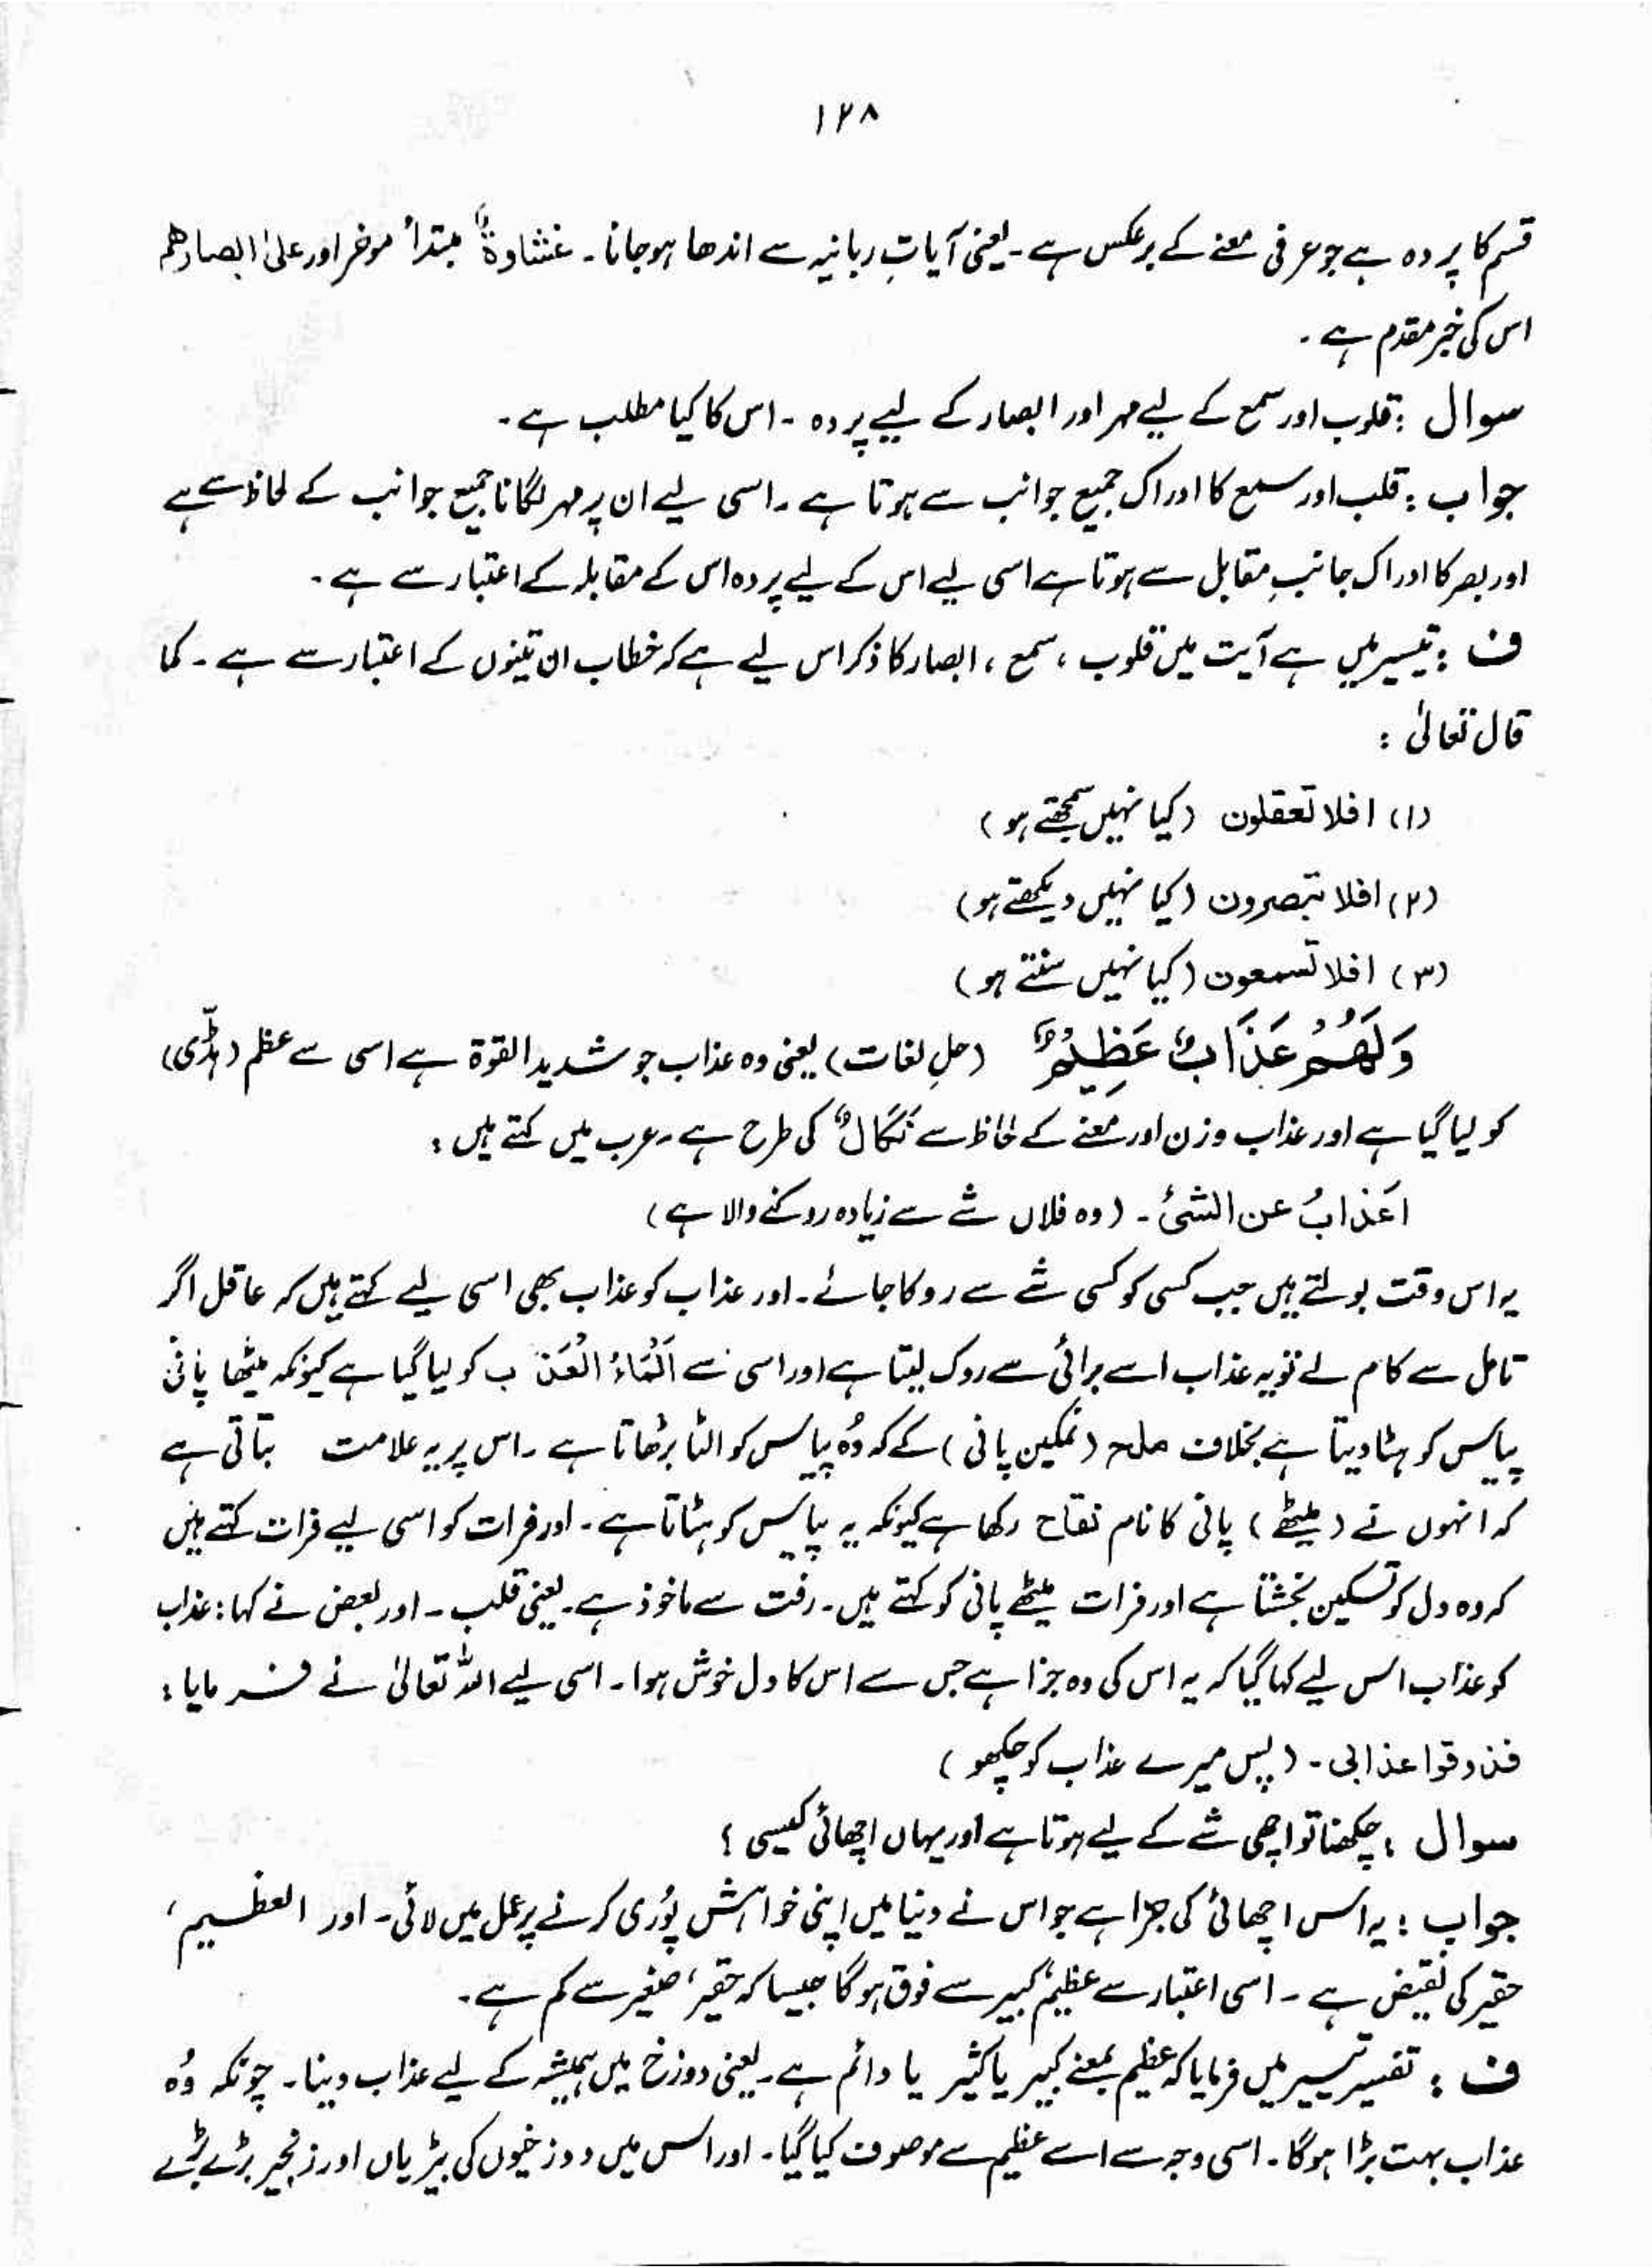 ۱۲۸
قسم کا پردہ ہے جو عرفی معنے کے برعکس ہے ۔ یعنی آیاتِ ربانیہ سے اندھا ہوجانا ۔ غشاوۃٌ مبتدأ موخر اور علیٰ ابصارھم
اس کی خبر مقدم ہے ۔
سوال : قلوب اور سمع کے لیے مہر اور ابصار کے لیے پردہ ۔ اس کا کیا مطلب ہے ۔
جواب : قلب اور سمع کا ادراک جمیع جوانب سے ہوتا ہے ۔ اسی لیے ان پر مہر لگانا جمیع جوانب کے لحاظ سے ہے
اور بصر کا ادراک جانبِ مقابل سے ہوتا ہے اسی لیے اس کے لیے پردہ اس کے مقابلہ کے اعتبار سے ہے ۔
ف : تیسیر میں ہے آیت میں قلوب ، سمع ، ابصار کا ذکر اس لیے ہے کہ خطاب ان تینوں کے اعتبار سے ہے ۔ کما
قال تعالیٰ :
(۱) افلا تعقلون (کیا نہیں سمجھتے ہو)
(۲) افلا تبصرون (کیا نہیں دیکھتے ہو)
(۳) افلا تسمعون (کیا نہیں سنتے ہو)
وَلَهُمْ عَذَابٌ عَظِيْمٌ (حلِ لغات) یعنی وہ عذاب جو شدید القوۃ ہے اسی سے عظم (ہڈّی)
کو لیا گیا ہے اور عذاب وزن اور معنے کے لحاظ سے نَکَالٌ کی طرح ہے ۔ عرب میں کہتے ہیں :
اَعْذابُ عن الشیٔ ۔ (وہ فلاں شے سے زیادہ روکنے والا ہے)
یہ اس وقت بولتے ہیں جب کسی کو کسی شے سے روکا جائے ۔ اور عذاب کو عذاب بھی اسی لیے کہتے ہیں کہ عاقل اگر
تامل سے کام لے تو یہ عذاب اسے برائی سے روک لیتا ہے اور اسی سے اَلْمَاءُ الْعَذْ ب کو لیا گیا ہے کیونکہ میٹھا پانی
پیاس کو ہٹا دیتا ہے بخلاف ملح (نمکین پانی) کے کہ وُہ پیاس کو الٹا بڑھاتا ہے ۔ اس پر یہ علامت بتاتی ہے
کہ انہوں نے (میٹھے) پانی کا نام نقاح رکھا ہے کیونکہ یہ پیاس کو ہٹاتا ہے ۔ اور فرات کو اسی لیے فرات کہتے ہیں
کہ وہ دل کو تسکین بخشتا ہے اور فرات میٹھے پانی کو کہتے ہیں ۔ رفت سے ماخوذ ہے ۔ یعنی قلب ۔ اور بعض نے کہا : عذاب
کو عذاب اس لیے کہا گیا کہ یہ اس کی وہ جزا ہے جس سے اس کا دل خوش ہوا ۔ اسی لیے اللہ تعالیٰ نے فرمایا :
فذوقوا عذابی ۔ (پس میرے عذاب کو چکھو)
سوال : چکھنا تو اچھی شے کے لیے ہوتا ہے اور یہاں اچھائی کیسی ؟
جواب : یہ اس اچھائی کی جزا ہے جو اس نے دنیا میں اپنی خواہش پُوری کرنے پر عمل میں لائی ۔ اور العظیم ،
حقیر کی نقیض ہے ۔ اسی اعتبار سے عظیم، کبیر سے فوق ہوگا جیسا کہ حقیر ، صغیر سے کم ہے ۔
ف : تفسیر تیسیر میں فرمایا کہ عظیم بمعنے کبیر یا کثیر یا دائم ہے ۔ یعنی دوزخ میں ہمیشہ کے لیے عذاب دینا ۔ چونکہ وُہ
عذاب بہت بڑا ہوگا ۔ اسی وجہ سے اسے عظیم سے موصوف کیا گیا ۔ اور اس میں دوزخیوں کی بیڑیاں اور زنجیر بڑے بڑے